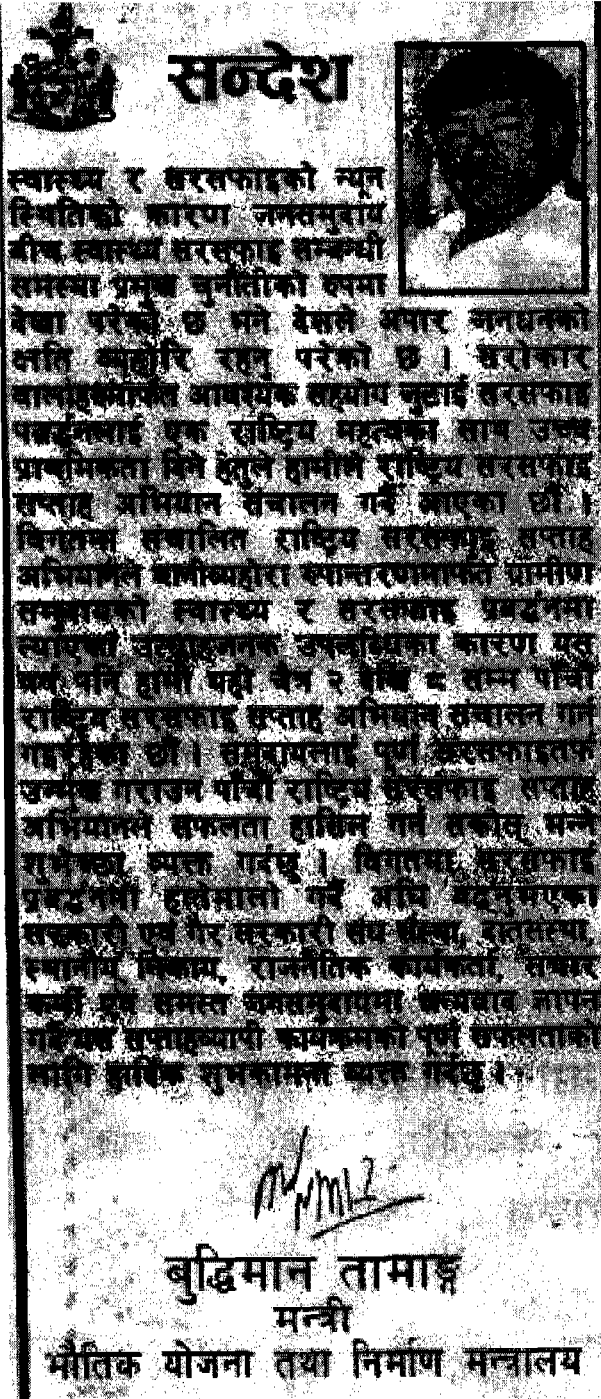 सन्देश
स्वास्थ्य र सरसफाइको न्यून
स्थितिको कारण जनसमुदाय
बीच स्वास्थ्य सरसफाइ सम्बन्धी
समस्या प्रमुख चुनौतीको रुपमा
देखा परेको छ भने देशले अपार जनधनको
क्षति व्यहोरि रहनु परेको छ । सरोकार
वालाहरुमार्फत आवश्यक सहयोग जुटाई सरसफाइ
प्रबर्द्धनलाई एक राष्ट्रिय महत्वका साथ उच्च
प्राथमिकता दिने हेतुले हामीले राष्ट्रिय सरसफाइ
सप्ताह अभियान संचालन गर्दै आएका छौं ।
विगतमा संचालित राष्ट्रिय सरसफाइ सप्ताह
अभियानले बानीव्यहोरा रुपान्तरणमार्फत ग्रामीण
समुदायको स्वास्थ्य र सरसफाइ प्रबर्द्धनमा
ल्याएको उत्साहजनक उपलब्धिका कारण यस
वर्ष पनि हामी यही चैत्र २ देखि ८ सम्म पाँचौ
राष्ट्रिय सरसफाइ सप्ताह अभियान संचालन गर्न
गइरहेका छौं । समुदायलाई पूर्ण सरसफाइतर्फ
उन्मुख गराउन पाँचौ राष्ट्रिय सरसफाइ सप्ताह
अभियानले सफलता हासिल गर्न सकोस् भन्ने
शुभेच्छा व्यक्त गर्दछु । विगतमा सरसफाइ
प्रबर्द्धनमा हातेमालो गर्दै अघि बढ्नुभएका
सरकारी एवं गैर सरकारी संघ संस्था, दातृसंस्था,
स्थानीय निकाय, राजनैतिक कार्यकर्ता, संचार
कर्मी एवं समस्त जनसमुदायमा धन्यवाद ज्ञापन
गर्दै यस सप्ताहव्यापी कार्यक्रमको पूर्ण सफलताको
लागि हार्दिक शुभकामना व्यक्त गर्दछु ।
बुद्धिमान तामाङ्ग
मन्त्री
भौतिक योजना तथा निर्माण मन्त्रालय